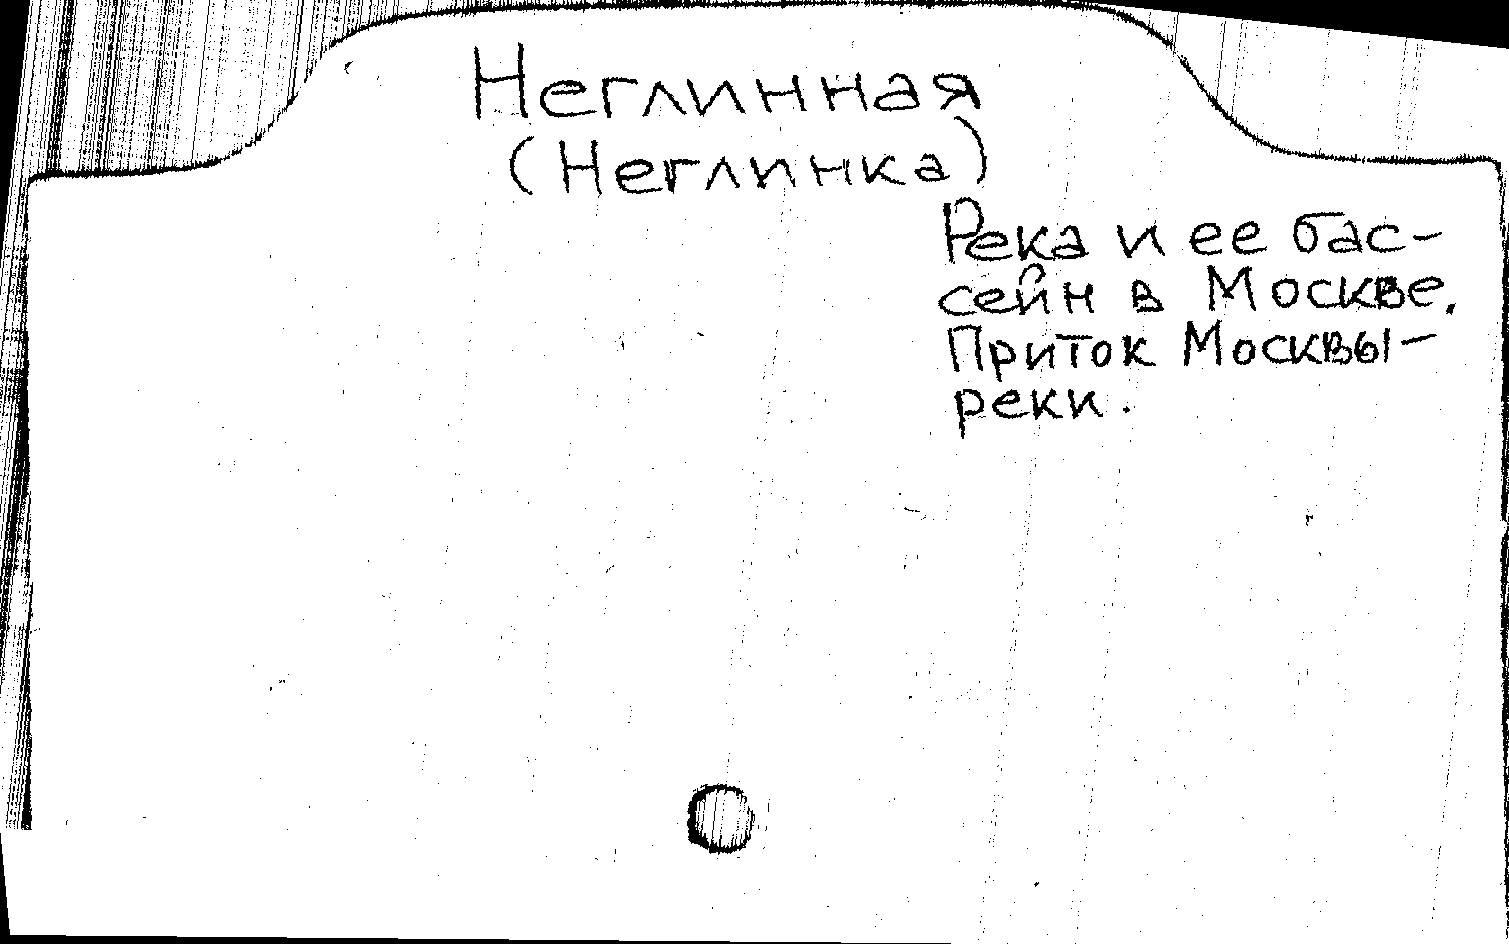 Неглинная
(Неглинка)
Река и ее бас-
сейн в Москве.
Приток Москвы-
реки.